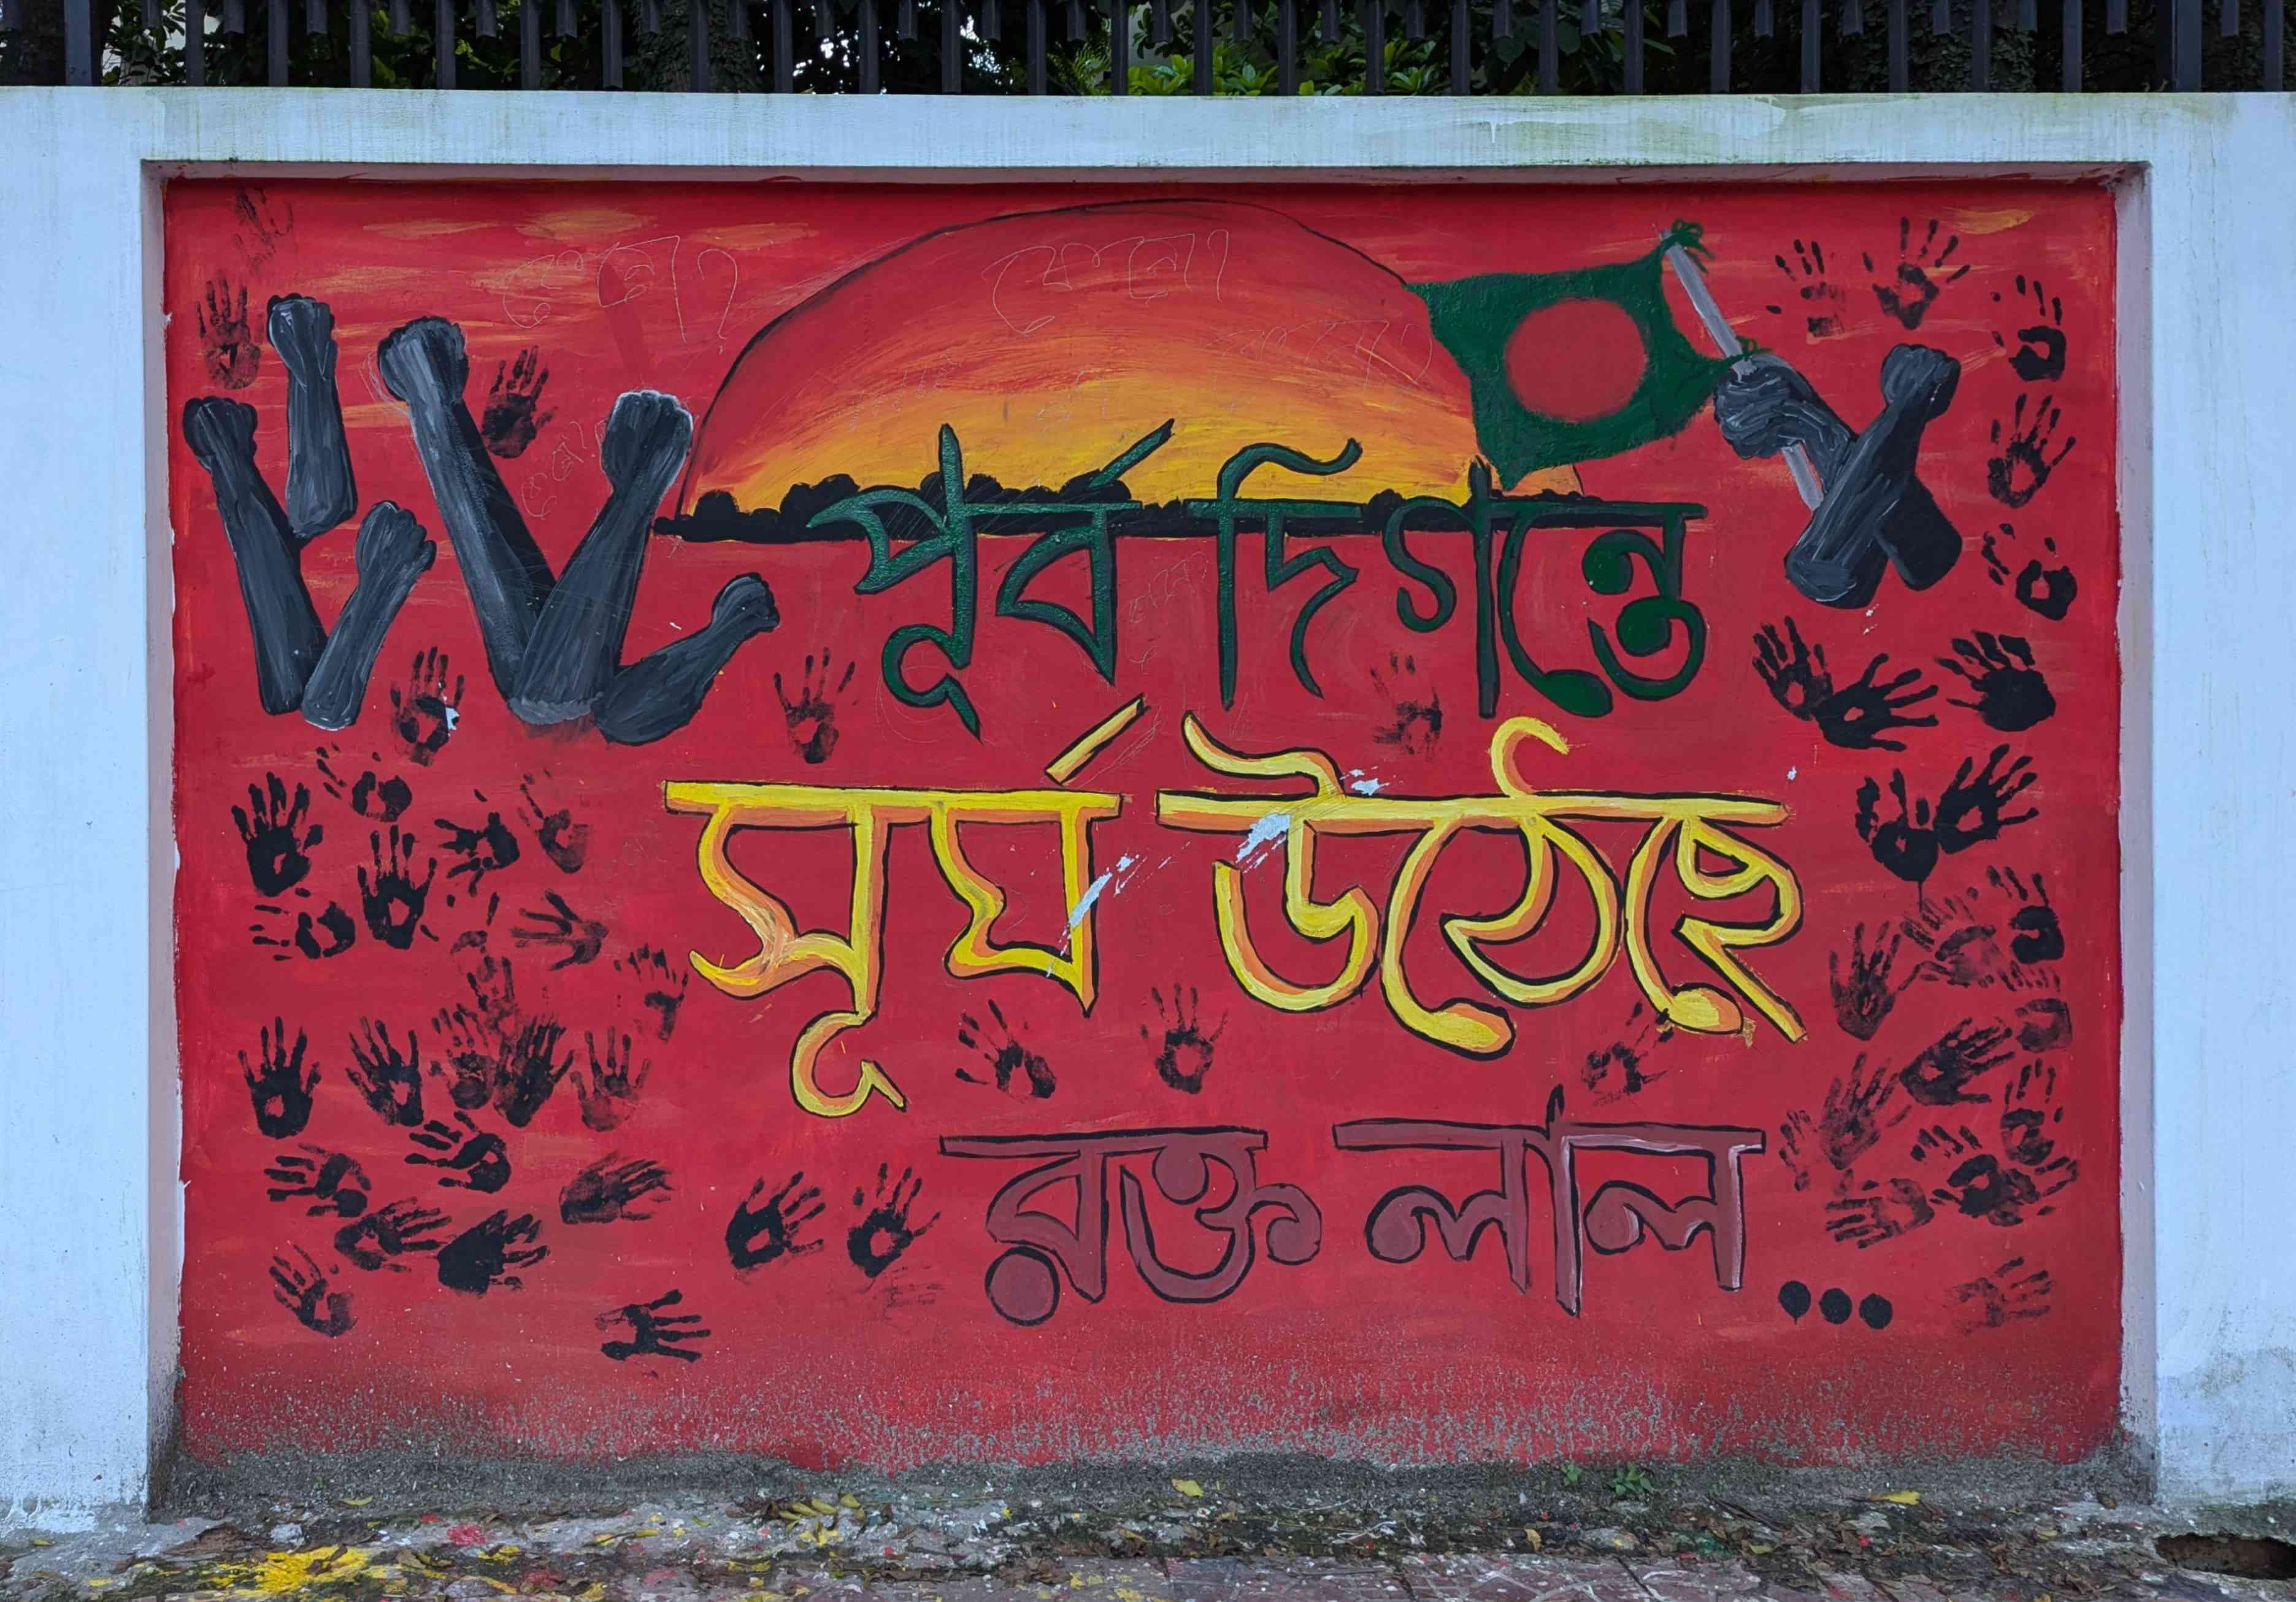 পূর্ব দিগন্তে
সূর্য উঠেছে
রক্ত লাল...